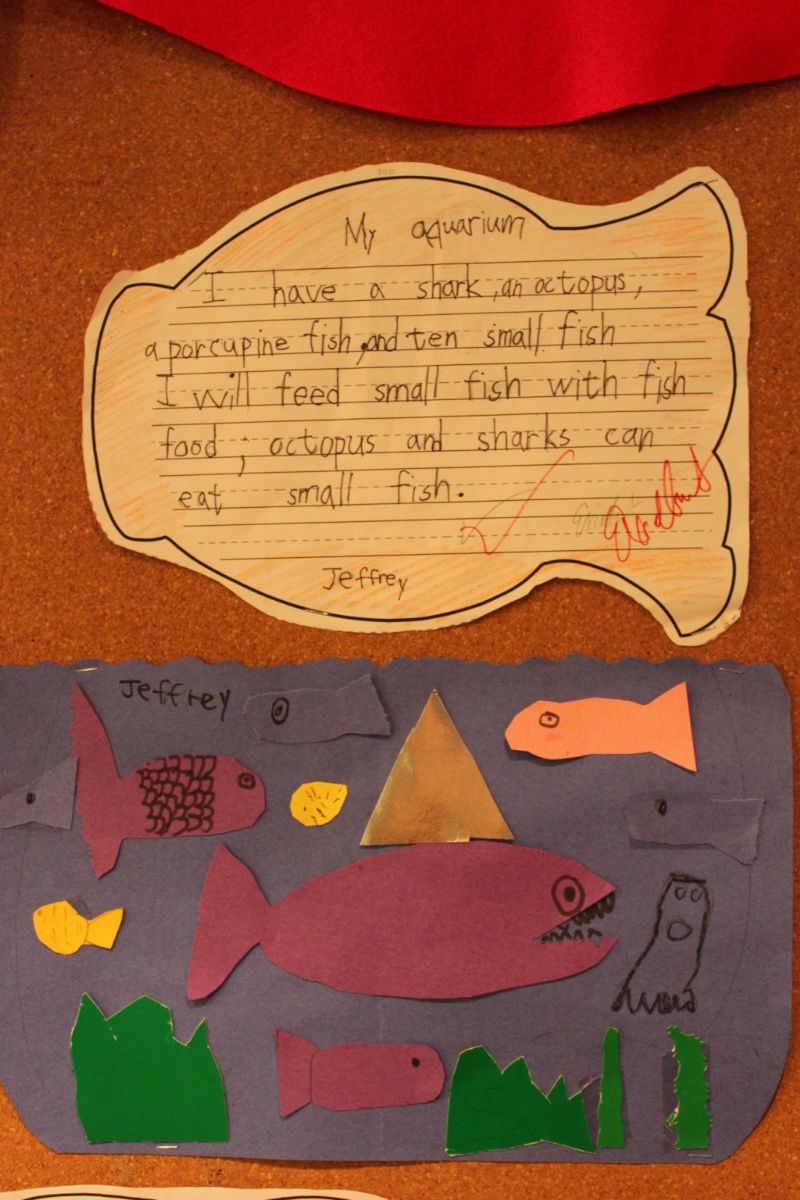 top
My aquarium
I have a shark, an octopus,
a porcupine fish, and ten small fish
I will feed small fish with fish
food; octopus and sharks can
eat small fish.
Jeffrey
Jeffrey